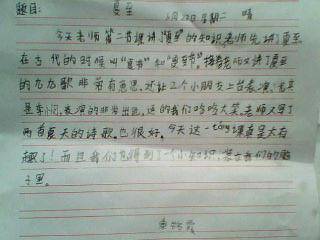 题目: 夏至
6月22日 星期二 晴
今天老师第二节课讲夏至的知识老师先讲了夏至
在古代的时候叫"夏节"和"夏至节"。接着老师又讲了夏至
的九九歌非常有意思,还让三个小朋友上台表演,尤其
是 表演的非常出色,逗的我们哈哈大笑。老师又写了
两首夏天的诗歌。也很好。今天这一táng课真是太有
趣了!而且我们也得到了一个小知识,装在我们的脑
子里。